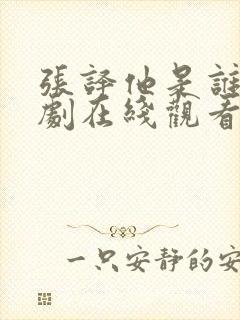 張譯他是誰
劇在綫觀看
一只安靜的安